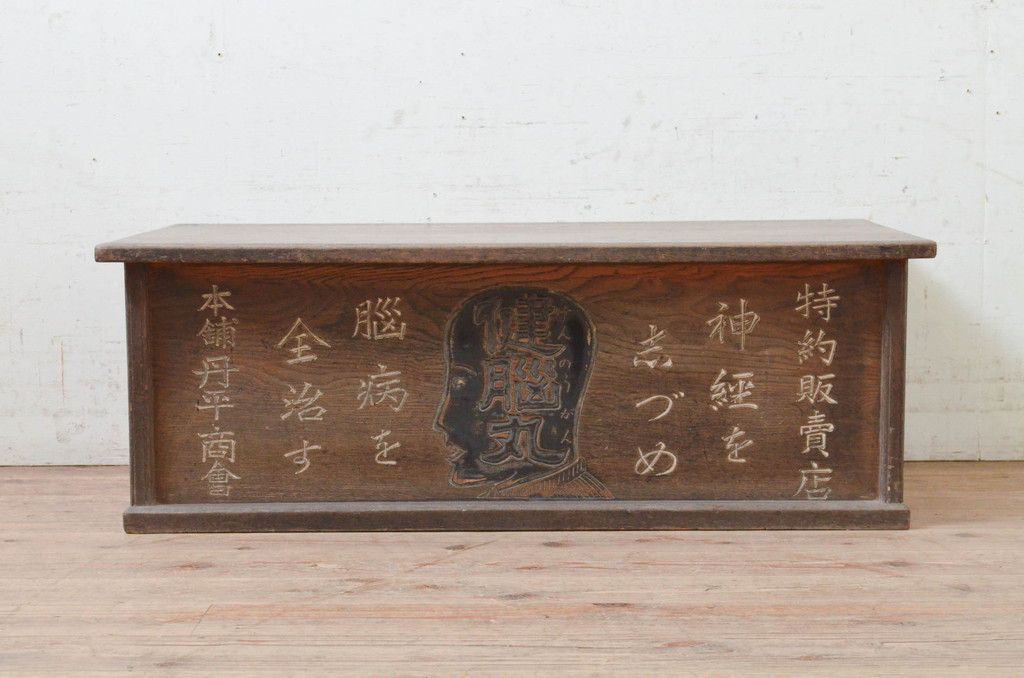 特約販賣店
神經を
志づめ
健腦丸
けんのうがん
腦病を
全治す
本舗丹平商會